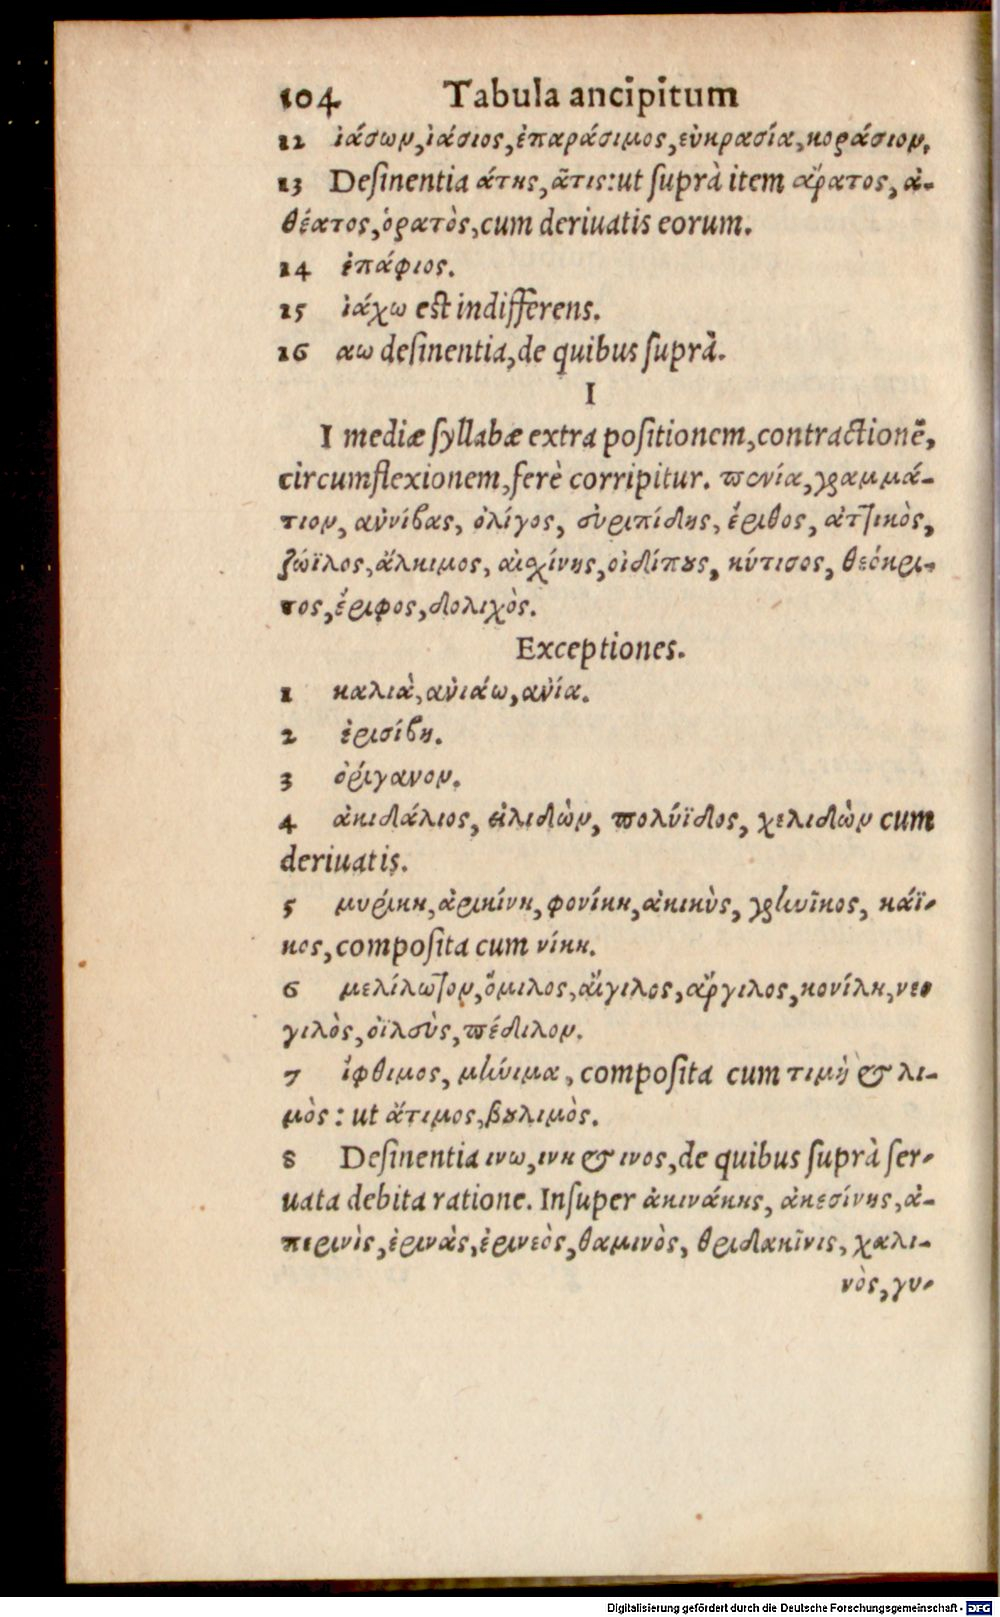 104 Tabula ancipitum
12 ἰάσων, ἰάσιος, ἐπαράσιμος, εὐκρασία, κοράσιον.
13 Desinentia άτης, ᾶτις: ut suprà item ἄρατος, ἀ-
θέατος, ὁρατὸς, cum deriuatis eorum.
14 ἐπάφιος.
15 ἰάχω est indifferens.
16 αω desinentia, de quibus suprà.
I
I mediæ syllabæ extra positionem, contractionẽ,
circumflexionem, ferè corripitur. πονία, γραμμά-
τιον, αὐνίβας, ὀλίγος, σὐριπίδης, ἔριθος, ἀτ7ικὸς,
ζώϊλος, ἄλκιμος, αἰσχίνης, οἰδίπους, κύτισος, θεόκρι-
τος, ἔριφος, δολιχὸς.
Exceptiones.
1 καλιὰ, ἀνιάω, ἀνία.
2 ἐρισίβη.
3 ὀρίγανον.
4 ἀκιδάλιος, χλιδὼν, πολύϊδος, χελιδὼν cum
deriuatis.
5 μυρίκη, ἀρικίνη, φονίκη, ἀκικὺς, γρηνῖκος, κάϊ-
κος, composita cum νίκη.
6 μελίλωτον, ὅμιλος, αἴγιλος, ἄργιλος, κονίλη, νεο
γιλὸς, οἰϊλσὺς, πέδιλον.
7 ἴφθιμος, μήνιμα, composita cum τιμὴ & λι-
μὸς: ut ἄτιμος, βουλιμὸς.
8 Desinentia ινω, ινη & ινος, de quibus suprà ser-
uata debita ratione. Insuper ἀκινάκης, ἀκεσίνης, ἀ-
περινὶς, ἐρινὰς, ἐρινεὸς, θαμινὸς, θριδακῖνις, χαλι-
νὸς, γυ-
Digitalisierung gefördert durch die Deutsche Forschungsgemeinschaft - DFG